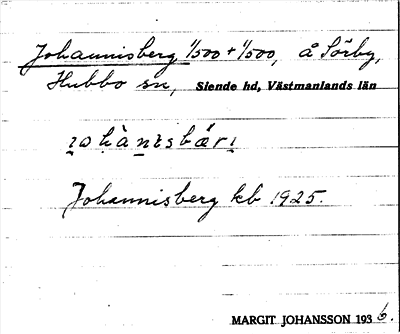 Johannisberg 1/500 + 1/500, å Sörby,
Hubbo sn, Siende hd, Västmanlands län
Johannisberg kb 1925.
MARGIT JOHANSSON 1936.